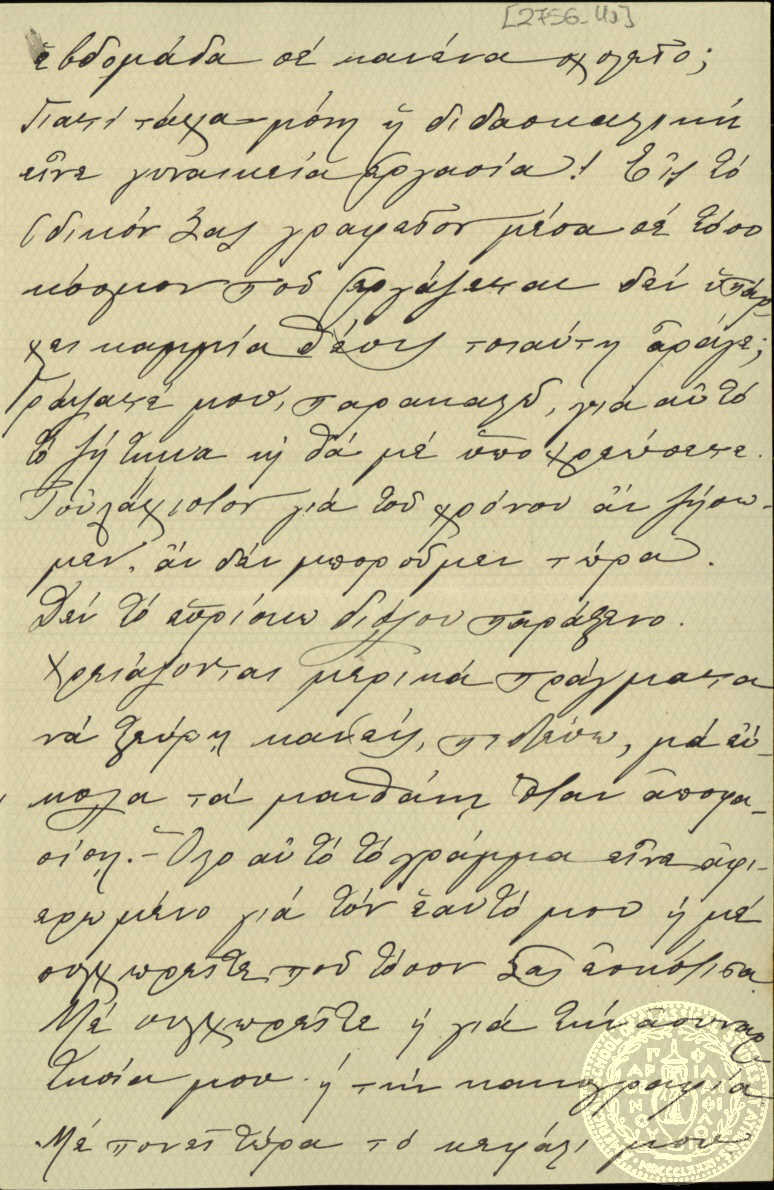 [2756-ιιδ]
ἑβδομάδα σέ κανένα σχολεῖο;
Γιατί τάχα μόνη ἡ διδασκαλική
εἶνε γυναικεία ἐργασία! Εἰς τό
ἰδικόν Σας γραφεῖον μέσα σέ τόσο
κόσμον ποῦ ἐργάζεται δέν ὑπάρ-
χει καμμία θέσις τοιαύτη ἆράγε;
Γράψατέ μου, παρακαλῶ, γιά αὐτό
τό ζήτημα κ θά μέ ὑποχρεώσετε.
Τοὐλάχιστον γιά τοῦ χρόνου ἄν ζήσω-
μεν, ἄν δέν μποροῦμεν τώρα.
Δέν τό εὑρίσκω διόλου παράξενο.
Χρειάζονται μερικά πράγματα
νά ξεύρῃ κανείς, πιστεύω, μά εὔ-
κολα τά μανθάνῃ ὅταν ἀποφα-
σίσῃ. – Ὅλο αὐτό τό γράμμα εἶνε ἀφι-
ερωμένο γιά τόν ἑαυτό μου κ μέ
συγχωρεῖτε ποῦ τόσον Σας ἐσκότισα
Μέ συγχωρεῖτε κ γιά τήν ἀσυναρ-
τησία μου κ τήν κακογραφία
Μέ πονεῖ τώρα τό κεφάλι μου